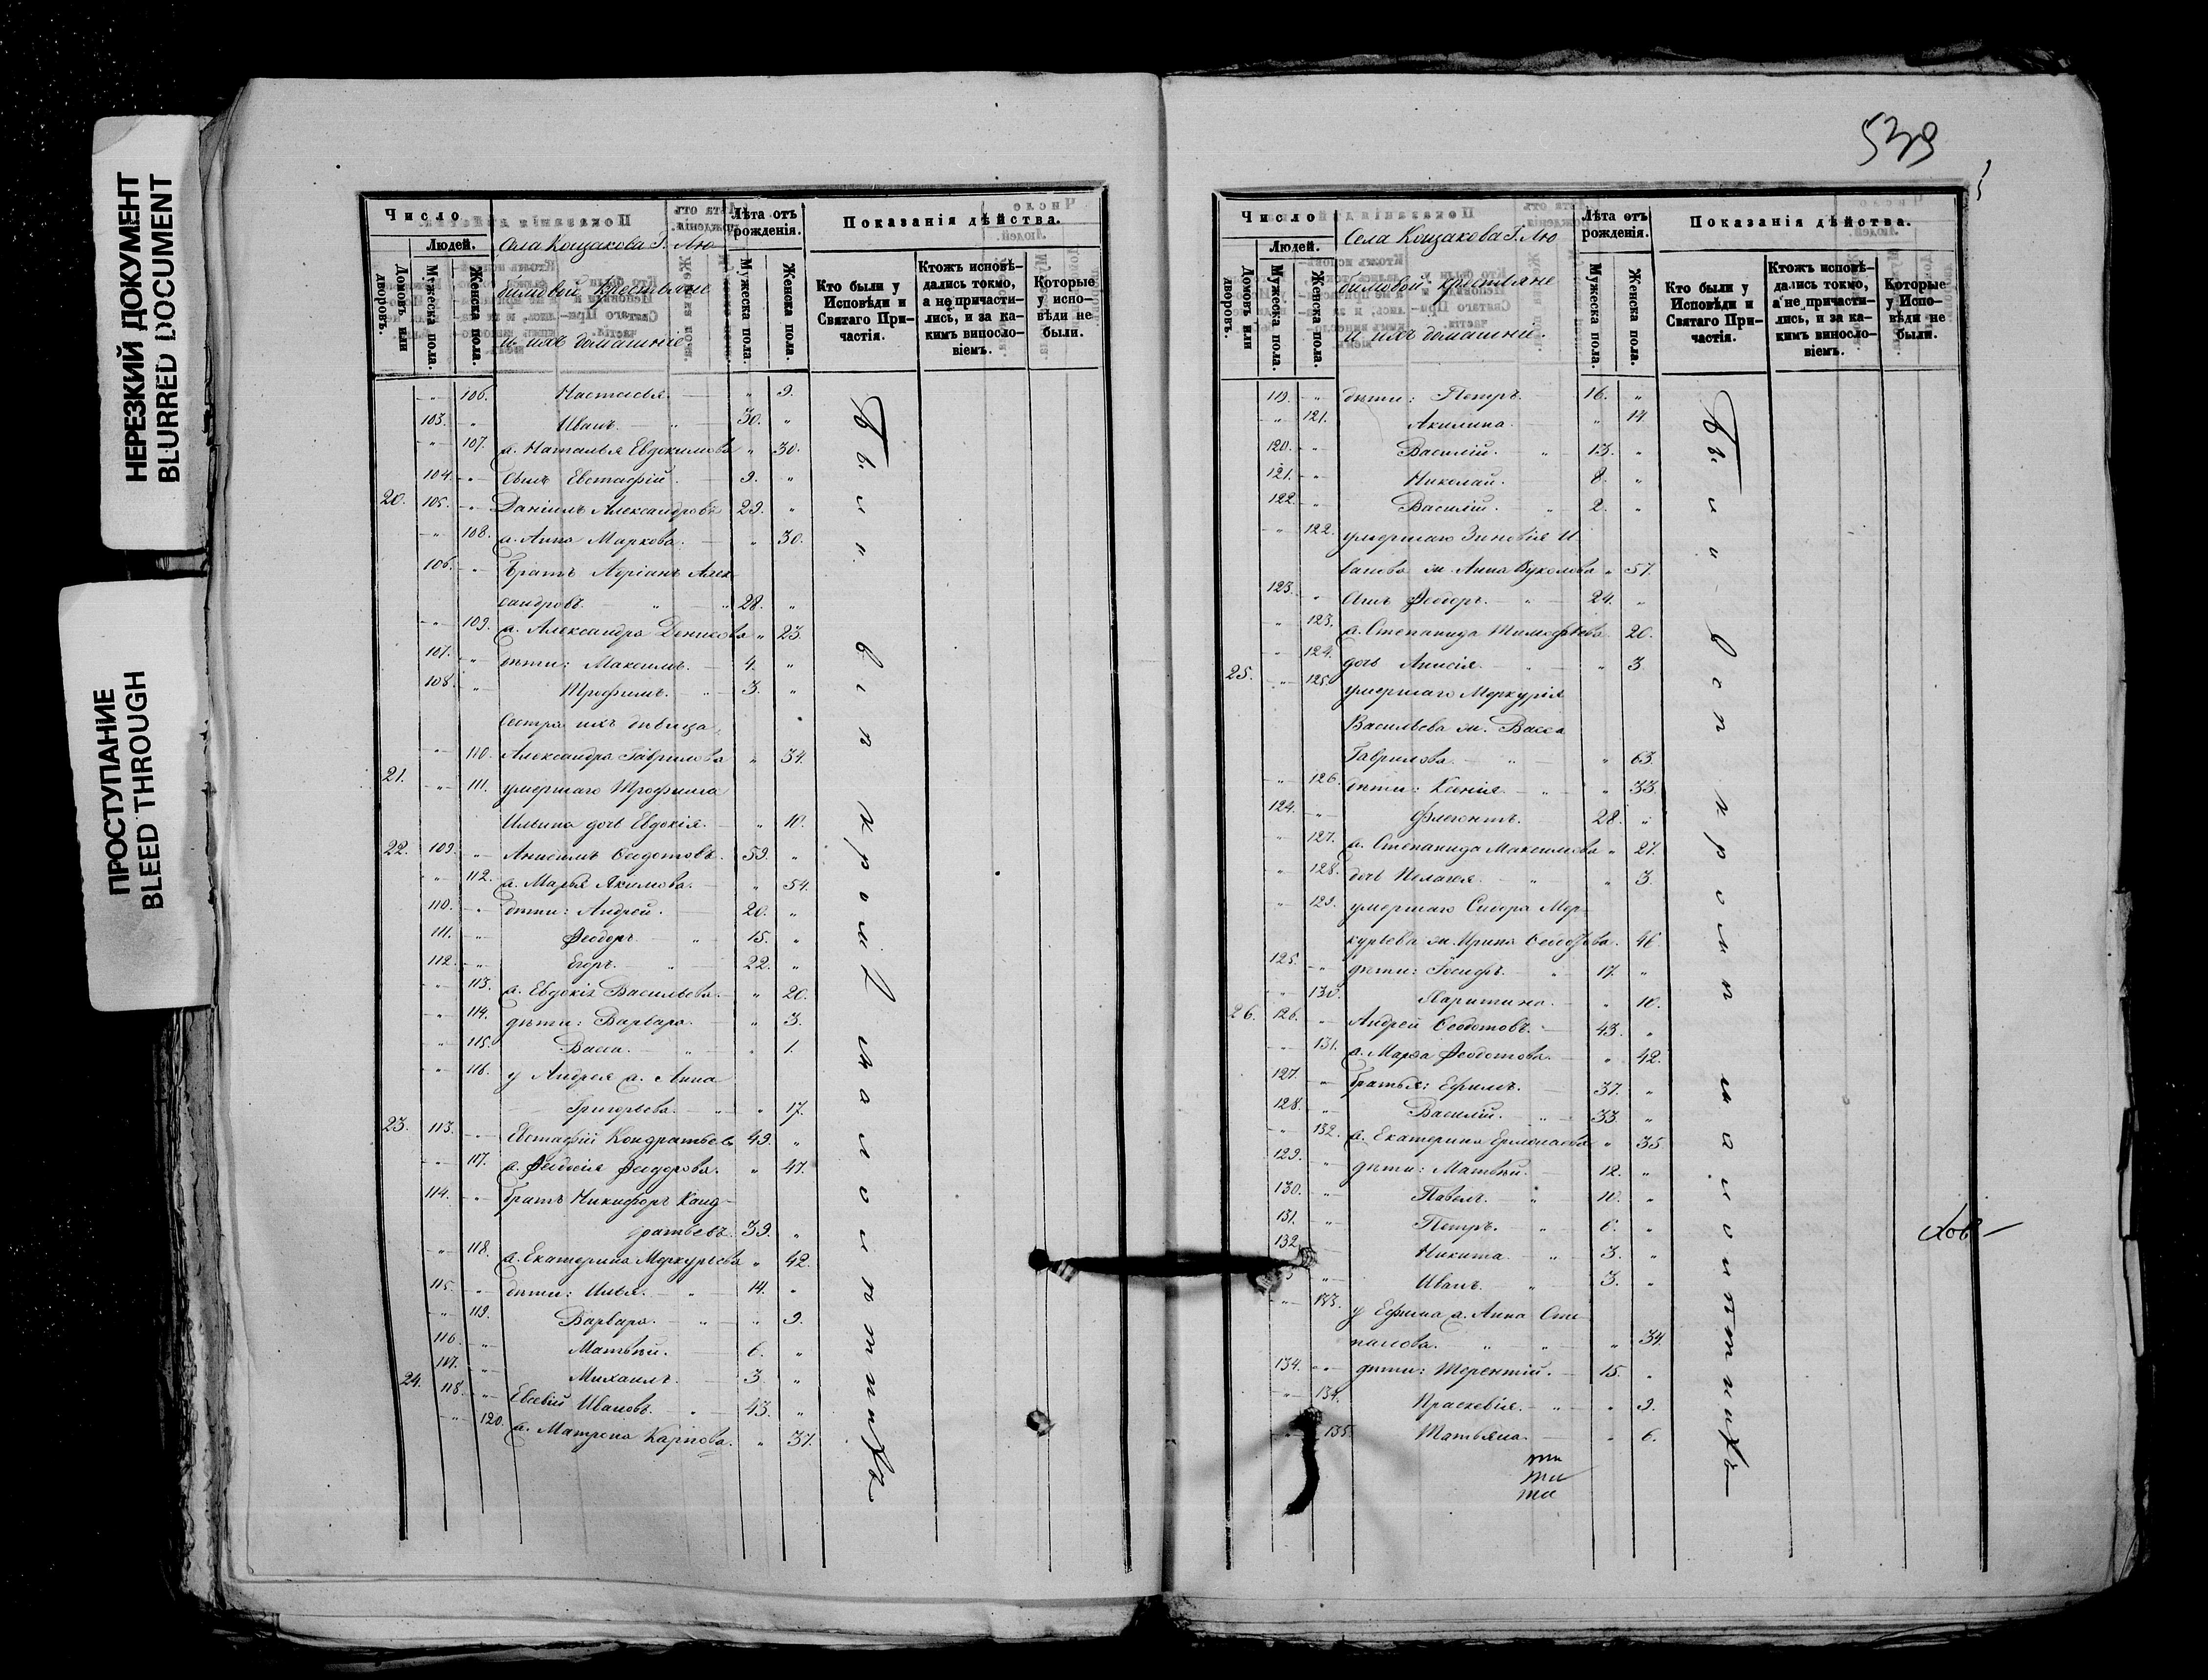 НЕРЕЗКИЙ ДОКУМЕНТ
BLURRED DOCUMENT
ПРОСТУПАНИЕ
BLEED THROUGH
Число
Людей.
Домовъ или дворовъ.
Мужеска пола.
Женска пола.
Села Кощакова Г. Лю
бимовой крестьяне
и ихъ домашніе.
Лѣта отъ рожденія.
Мужеска пола.
Женска пола.
Показанія дѣйства.
Кто были у Исповѣди и Святаго Причастія.
Ктожъ исповѣдались токмо, а не причастились, и за какимъ винословіемъ.
Которые у исповѣди не были.
" 106. Настасья. " 9.
103. " Иванъ. 30. "
" 107. ж. Наталья Евдокимова " 30.
104. " Сынъ Евстафій. 9. "
20. 105. " Даніилъ Александровъ 29. "
" 108. ж. Анна Маркова. " 30.
106. " Братъ Адріанъ Алек
сандровъ. 28. "
" 109. ж. Александра Денисова " 23.
107. " дѣти: Максимъ. 4. "
108. " Трофимъ. 3. "
Сестра ихъ дѣвица
" 110. Александра Гаврилова " 34.
21. " 111. умершаго Трофима
Ильина дочь Евдокія. " 10.
22. 109. " Анисимъ Ѳедотовъ. 59. "
" 112. ж. Марья Акимова. " 54.
110. " дѣти: Андрей. 20. "
111. " Ѳеодоръ. 15. "
112. " Егоръ. 22. "
" 113. ж. Евдокія Васильева. " 20.
" 114. дѣти: Варвара. " 3.
" 115. Васса. " 1.
" 116. у Андрея ж. Анна
Григорьева. " 17.
23. 113. " Евстафій Кондратьевъ 49. "
" 117. ж. Ѳедосія Ѳеодорова. " 47.
114. " братъ Никифоръ Конд-
ратьевъ. 39. "
" 118. ж. Екатерина Меркурьева " 42.
115. " дѣти: Илья. 14. "
" 119. Варвара. " 9.
116. " Матвѣй. 6. "
117. " Михаилъ. 3. "
24. 118. " Евсевій Ивановъ. 43. "
" 120. ж. Матрона Карпова. " 37.
539
Число
Людей.
Домовъ или дворовъ.
Мужеска пола.
Женска пола.
Села Кощакова Г. Лю
бимовой крестьяне
и ихъ домашни.
Лѣта отъ рожденія.
Мужеска пола.
Женска пола.
Показанія дѣйства.
Кто были у Исповѣди и Святаго Причастія.
Ктожъ исповѣдались токмо, а не причастились, и за какимъ винословіемъ.
Которые у Исповѣди не были.
119. " дѣти: Петръ. 16. "
" 121. Акилина. " 14.
120. " Василій. 13. "
121. " Николай. 8. "
122. " Василій. 2. "
" 122. умершаго Зиновія И
ванова ж. Анна Вуколова " 57.
123. " Сынъ Ѳеодоръ. 24. "
" 123. ж. Степанида Тимоѳѣева. 20.
" 124. дочь Анисія. " 3.
25. " 125. умершаго Меркурія
Васильева ж. Васса
Гаврилова. " 63.
" 126. дѣти: Ксенія. " 33.
124. " Флегонтъ. 28. "
" 127. ж. Степанида Максимова " 27.
" 128. дочь Пелагея. " 3.
" 129. умершаго Сидора Мер-
курьева ж. Ирина 46.
125. " дѣти: Іосифъ. 17. "
" 130. " 10.
26. 126. " Андрей Ѳедотовъ. 43. "
" 131. ж. Марѳа Ѳеодотова. " 42.
127. " братья: Ефимъ. 37. "
128. " Василій. 33. "
" 132. ж. Екатерина Ермолаева " 35.
129. " дѣти: Матвѣй. 12. "
130. " Павелъ. " 10. "
131. " Петръ. " 6. "
132. Никита. " 3. "
" Иванъ. " 3. "
" 133. у Ефима ж. Анна Сте
панова. " 34.
134. " дѣти: Терентій. 15. "
" 134. Праскевія. " 9.
" 135. Татьяна. " 6.